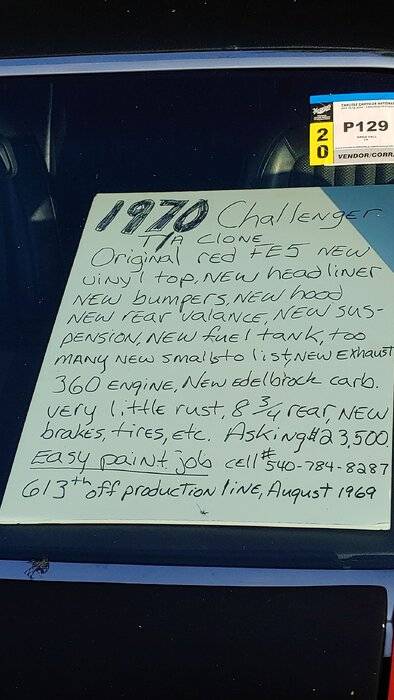 CARLISLE CHRYSLER NATIONALS
20
P129
VENDOR/CORR
1970 Challenger
T/A CLONE
Original red FE5 NEW
vinyl top, NEW headliner
NEW bumpers, NEW hood
NEW rear valance, NEW SUS-
PENSION, NEW fuel tank, too
MANY NEW smalls to list, NEW Exhaust
360 ENGINE, NEW Edelbrock carb.
very little rust, 8 3/4 rear, NEW
brakes, tires, etc. Asking $23,500.
Easy paint job cell # 540-784-8287
613th off production line, August 1969